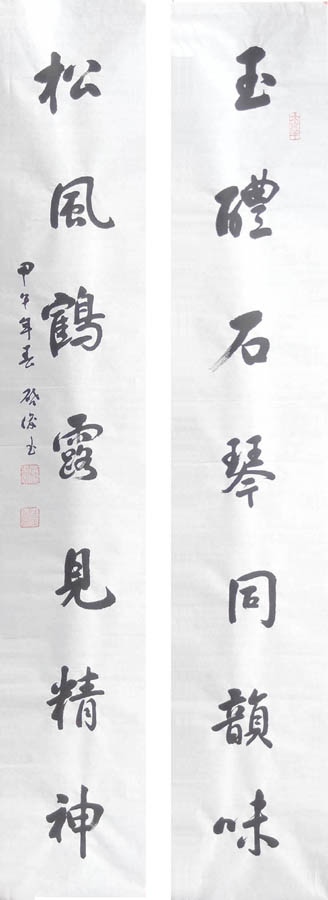 玉醴石琴同韻味
松風鶴露見精神
甲午年春 啓俊書